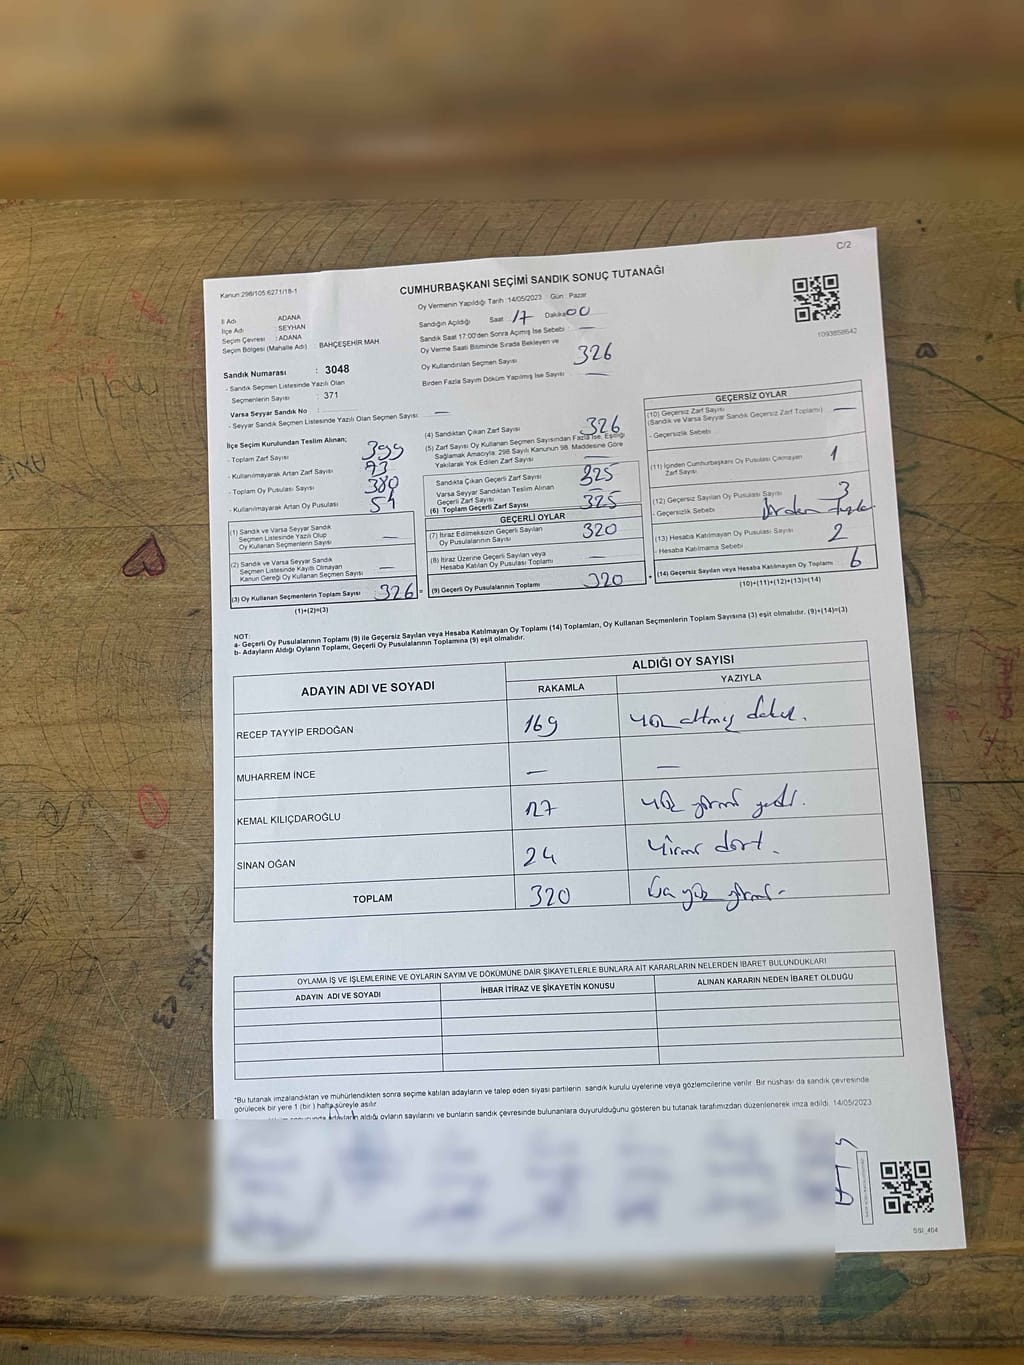 C/2
Kanun:298/105:6271/18-1
CUMHURBAŞKANI SEÇİMİ SANDIK SONUÇ TUTANAĞI
1093858642
İl Adı : ADANA
İlçe Adı : SEYHAN
Seçim Çevresi : ADANA
Seçim Bölgesi (Mahalle Adı) : BAHÇEŞEHİR MAH.
Sandık Numarası : 3048
- Sandık Seçmen Listesinde Yazılı Olan
Seçmenlerin Sayısı : 371
Varsa Seyyar Sandık No :
- Seyyar Sandık Seçmen Listesinde Yazılı Olan Seçmen Sayısı : —
Oy Vermenin Yapıldığı Tarih :14/05/2023 Gün : Pazar
Sandığın Açıldığı Saat 17 Dakika 00
Sandık Saat 17:00'den Sonra Açılmış İse Sebebi : —
Oy Verme Saati Bitiminde Sırada Bekleyen ve
Oy Kullandırılan Seçmen Sayısı 326
Birden Fazla Sayım Döküm Yapılmış İse Sayısı : —
İlçe Seçim Kurulundan Teslim Alınan;
- Toplam Zarf Sayısı 399
- Kullanılmayarak Artan Zarf Sayısı 73
- Toplam Oy Pusulası Sayısı 380
- Kullanılmayarak Artan Oy Pusulası 54
(1) Sandık ve Varsa Seyyar Sandık
Seçmen Listesinde Yazılı Olup
Oy Kullanan Seçmenlerin Sayısı —
(2) Sandık ve Varsa Seyyar Sandık
Seçmen Listesinde Kayıtlı Olmayan
Kanun Gereği Oy Kullanan Seçmen Sayısı —
(3) Oy Kullanan Seçmenlerin Toplam Sayısı 326 =
(1)+(2)=(3)
(4) Sandıktan Çıkan Zarf Sayısı 326
(5) Zarf Sayısı Oy Kullanan Seçmen Sayısından Fazla İse, Eşitliği
Sağlamak Amacıyla, 298 Sayılı Kanunun 98. Maddesine Göre
Yakılarak Yok Edilen Zarf Sayısı —
Sandıkta Çıkan Geçerli Zarf Sayısı 325
Varsa Seyyar Sandıktan Teslim Alınan
Geçerli Zarf Sayısı —
(6) Toplam Geçerli Zarf Sayısı 325
GEÇERLİ OYLAR
(7) İtiraz Edilmeksizin Geçerli Sayılan
Oy Pusulalarının Sayısı 320
(8) İtiraz Üzerine Geçerli Sayılan veya
Hesaba Katılan Oy Pusulası Toplamı —
(9) Geçerli Oy Pusulalarının Toplamı 320 +
GEÇERSİZ OYLAR
(10) Geçersiz Zarf Sayısı —
(Sandık ve Varsa Seyyar Sandık Geçersiz Zarf Toplamı)
- Geçersizlik Sebebi
(11) İçinden Cumhurbaşkanı Oy Pusulası Çıkmayan
Zarf Sayısı 1
(12) Geçersiz Sayılan Oy Pusulası Sayısı 3
- Geçersizlik Sebebi Birden Fazla
(13) Hesaba Katılmayan Oy Pusulası Sayısı 2
- Hesaba Katılmama Sebebi
(14) Geçersiz Sayılan veya Hesaba Katılmayan Oy Toplamı 6
(10)+(11)+(12)+(13)=(14)
NOT:
a- Geçerli Oy Pusulalarının Toplamı (9) ile Geçersiz Sayılan veya Hesaba Katılmayan Oy Toplamı (14) Toplamları, Oy Kullanan Seçmenlerin Toplam Sayısına (3) eşit olmalıdır. (9)+(14)=(3)
b- Adayların Aldığı Oyların Toplamı, Geçerli Oy Pusulalarının Toplamına (9) eşit olmalıdır.
ADAYIN ADI VE SOYADI
ALDIĞI OY SAYISI
RAKAMLA YAZIYLA
RECEP TAYYİP ERDOĞAN 169 yüz altmış dokuz.
MUHARREM İNCE — —
KEMAL KILIÇDAROĞLU 127 yüz yirmi yedi.
SİNAN OĞAN 24 yirmi dört.
TOPLAM 320 üç yüz yirmi -
OYLAMA İŞ VE İŞLEMLERİNE VE OYLARIN SAYIM VE DÖKÜMÜNE DAİR ŞİKAYETLERLE BUNLARA AİT KARARLARIN NELERDEN İBARET BULUNDUKLARI
ADAYIN ADI VE SOYADI İHBAR İTİRAZ VE ŞİKAYETİN KONUSU ALINAN KARARIN NEDEN İBARET OLDUĞU
*Bu tutanak imzalandıktan ve mühürlendikten sonra seçime katılan adayların ve talep eden siyasi partilerin sandık kurulu üyelerine veya gözlemcilerine verilir. Bir nüshası da sandık çevresinde
görülecek bir yere 1 (bir) hafta süreyle asılır.
adayların aldığı oyların sayılarını ve bunların sandık çevresinde bulunanlara duyurulduğunu gösteren bu tutanak tarafımızdan düzenlenerek imza edildi. 14/05/2023
SSİ_404